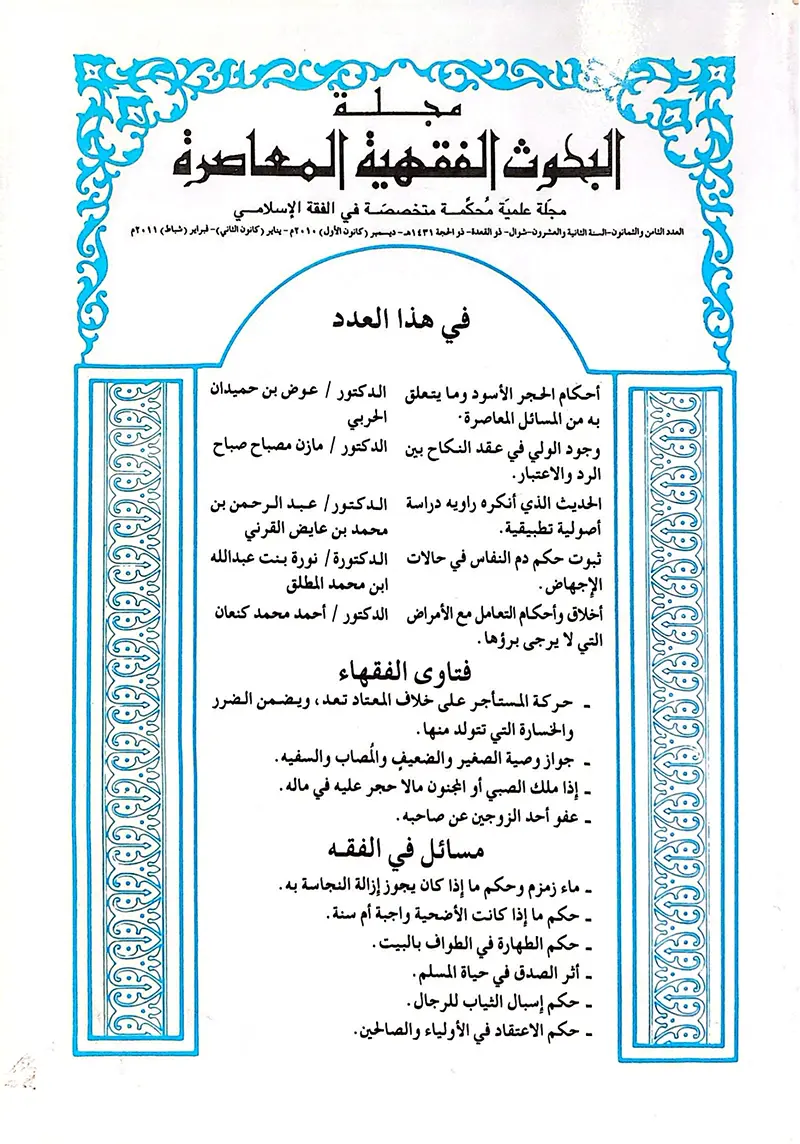 مجلة
البحوث الفقهية المعاصرة
مجلة علمية مُحكّمة متخصصة في الفقة الإسلامي
العدد الثامن والثمانون-السنة الثانية والعشرون-شوال- ذو القعدة- ذو الحجة ١٤٣١هـ- ديسمبر (كانون الأول) ٢٠١٠م - يناير (كانون الثاني)- فبراير (شباط) ٢٠١١م
في هذا العدد
أحكام الحجر الأسود وما يتعلق الدكتور / عوض بن حميدان
به من المسائل المعاصرة. الحربي
وجود الولي في عقد النكاح بين الدكتور / مازن مصباح صباح
الرد والاعتبار.
الحديث الذي أنكره راويه دراسة الدكتور/ عبد الرحمن بن
أصولية تطبيقية. محمد بن عايض القرني
ثبوت حكم دم النفاس في حالات الدكتورة/ نورة بنت عبدالله
الإجهاض. ابن محمد المطلق
أخلاق وأحكام التعامل مع الأمراض الدكتور / أحمد محمد كنعان
التي لا يرجى برؤها.
فتاوى الفقهاء
- حركة المستأجر على خلاف المعتاد تعد، ويضمن الضرر
والخسارة التي تتولد منها.
- جواز وصية الصغير والضعيف والمُصاب والسفيه.
- إذا ملك الصبي أو المجنون مالا حجر عليه في ماله.
- عفو أحد الزوجين عن صاحبه.
مسائل في الفقه
- ماء زمزم وحكم ما إذا كان يجوز إزالة النجاسة به.
- حكم ما إذا كانت الأضحية واجبة أم سنة.
- حكم الطهارة في الطواف بالبيت.
- أثر الصدق في حياة المسلم.
- حكم إسبال الثياب للرجال.
- حكم الاعتقاد في الأولياء والصالحين.